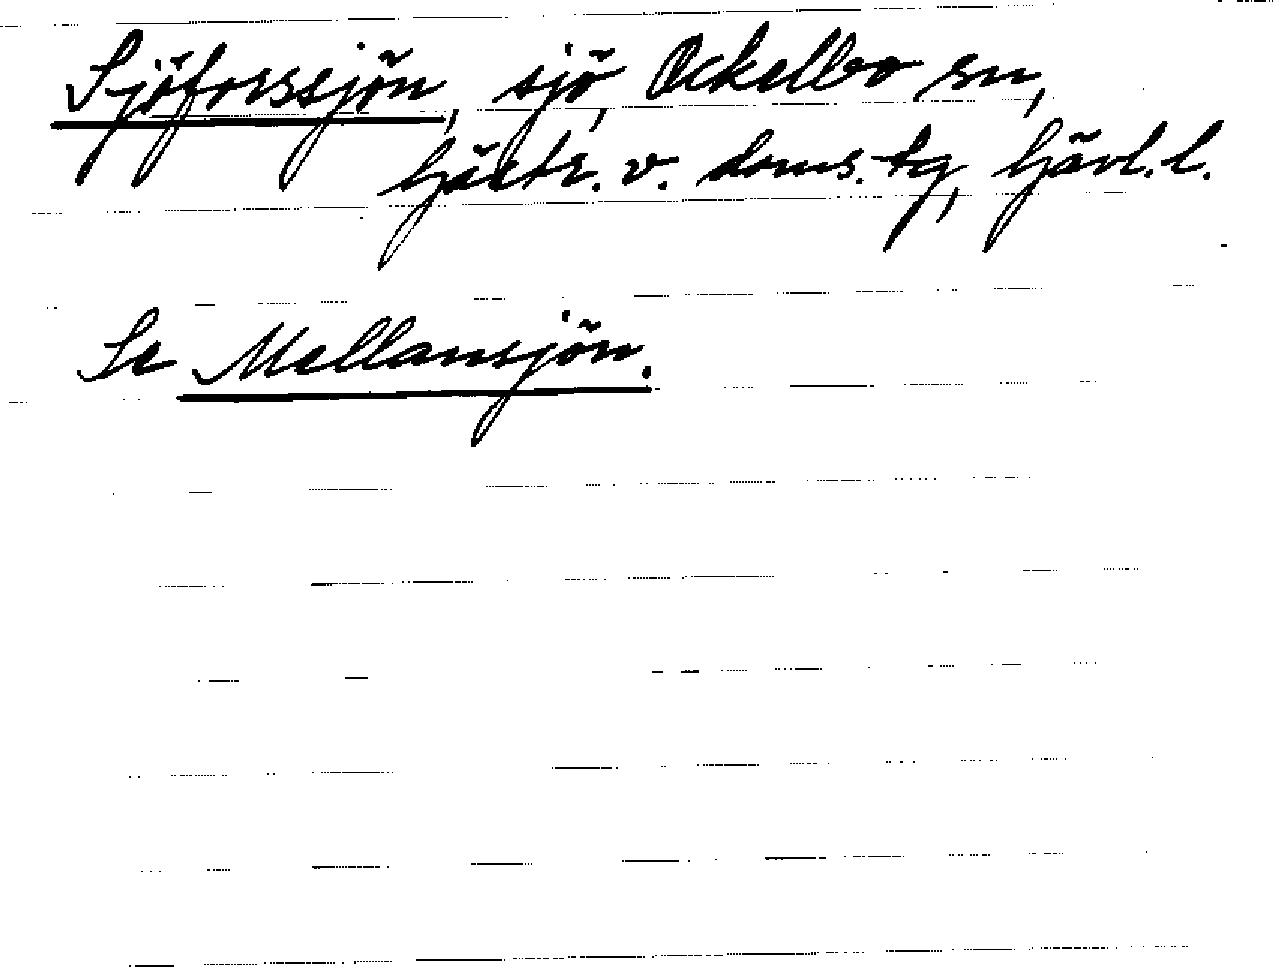 Sjöforssjön, sjö, Ockelbo sn,
Gästr. v. doms. tg, Gävl. l.
Se Mellansjön.